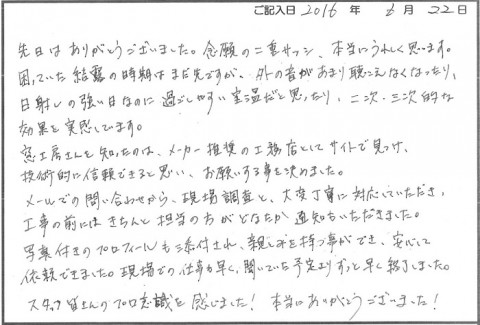 ご記入日 2016 年 6 月 22 日
先日はありがとうございました。念願の二重サッシ、本当にうれしく思います。
困っていた結露の時期はまだ先ですが、外の音があまり聴こえなくなったり、
日射しの強い日なのに過ごしやすい室温だと思ったり、二次・三次的な
効果を実感しています。
窓工房さんを知ったのは、メーカー推奨の工務店としてサイトで見つけ、
技術的に信頼できると思い、お願いする事を決めました。
メールでの問い合わせから、現場調査と、大変丁寧に対応していただき、
工事の前にはきちんと担当の方がどなたか通知もいただきました。
写真付きのプロフィールも添付され、親しみを持つ事ができ、安心して
依頼できました。現場での仕事も早く、聞いていた予定よりずっと早く終了しました。
スタッフ皆さんのプロ意識を感じました! 本当にありがとうございました!